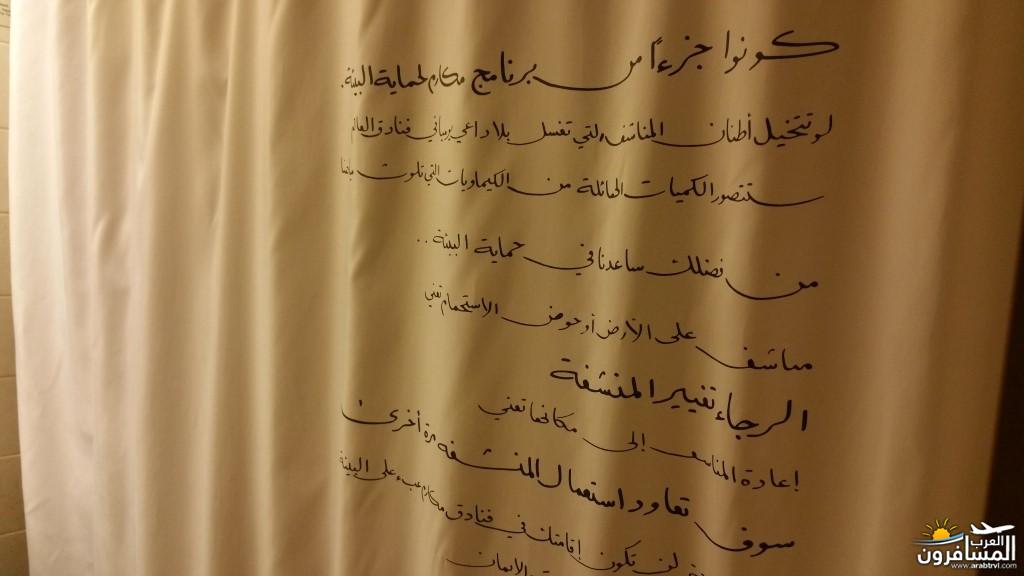 كونوا جزءاً من برنامج مكارم لحماية البيئة.
لو تتخيل أطنان المناشف التي تغسل بلا داعي يومياً في فنادق العالم
ستتصور الكميات الهائلة من الكيماويات التي تلوث مياهنا
من فضلك ساعدنا في حماية البيئة ..
مناشف على الأرض أو حوض الاستحمام تعني
الرجاء تغيير المنشفة
إعادة المناشف إلى مكانها تعني
سوف تعاود استعمال المنشفة مرة أخرى
لن تكون إقامتك في فنادق مكارم عبء على البيئة
العرب
المسافرون
www.arabtrvl.com